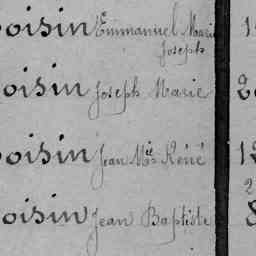 oisin Emmanuel Marie 1
Joseph
oisin Joseph Marie 2
oisin Jean Mie René 12
2
oisin Jean Baptiste 8